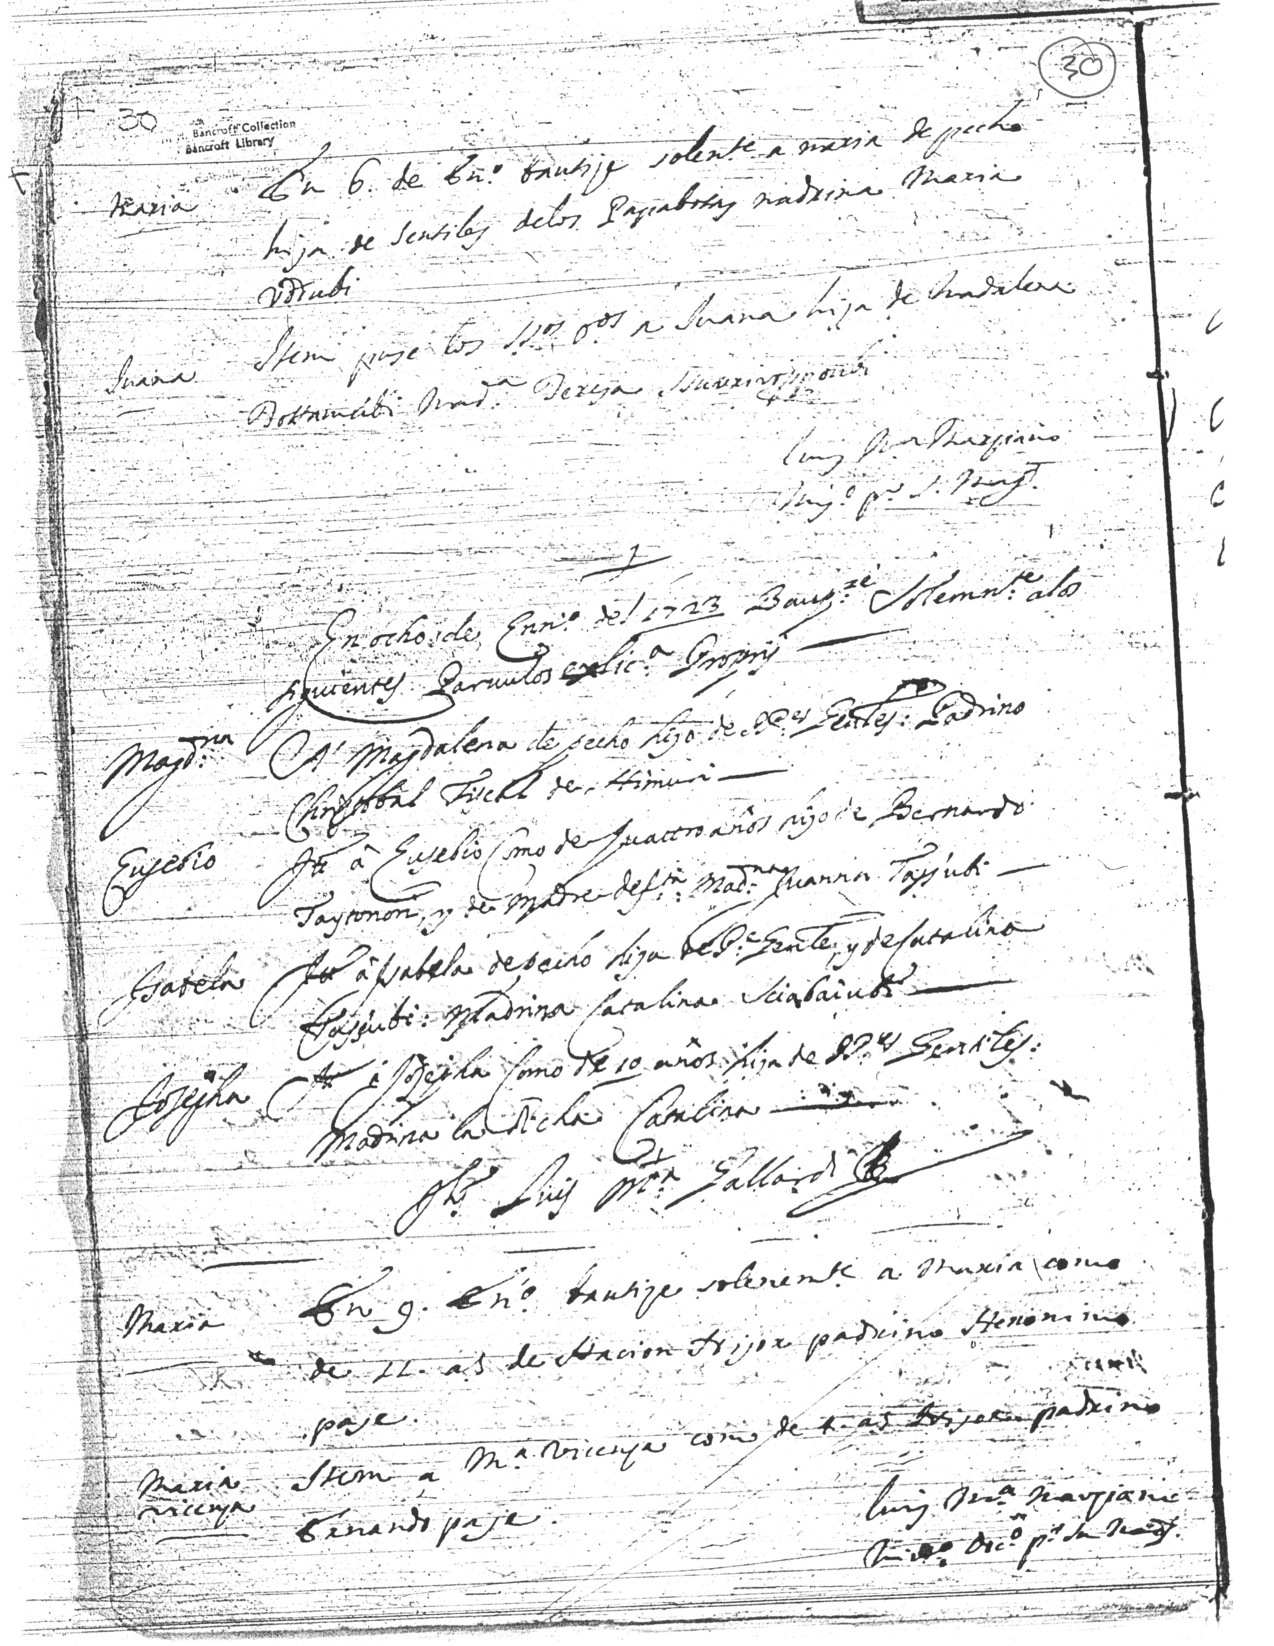 30
30
Bancroft Collection
Bancroft Library
Maria
En 6. de En.º bautise solente a maria de pecho
hija de Jentiles delos Papabotas madrina Maria
Juana
Item puse los S.tos o.os a Juana hija de Madalena
Mad.ª Teresa
Luis M.ª Marziano
Mis.º p.r S. Mag.d
1
En ocho de Enn.º del 1723 Baup.zé Solemn.te alos
siguientes Parvulos
Magd.na
A Magdalena de pecho hijo de P.es Gentles: Padrino
Christobal Fiscal de Himuri
Eusebio
Itt â Eusebio como de quattro años hijo de Bernardo
y de Madre def.ta: Mad.na Juanna Tapjubi
Isabela
Itt â Isabela de pecho hija de P.e Gentle, y de Catalina
Tapjubi: Madrina Catalina
Josepha
Itt â Josepha Como de 10 años hija de P.es Gentiles:
Madrina la dicha Catalina
Jhs Luis M.ª Gallardi
Maria
En 9. En.º bautise solenemte a Maria como
de 11. as de Nacion Nijora padrino Heronimo
paje.
Maria
Vicenza
Item a M.ª Vicenza como de 4. as Nijora padrino
Ernando paje.
Luis M.ª Marziano
p.r Su Mag.d.